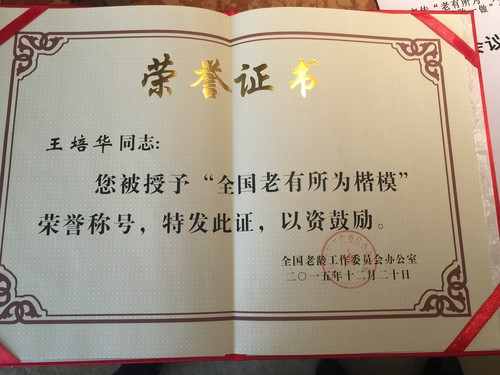 荣誉证书
王培华同志:
您被授予“全国老有所为楷模”
荣誉称号，特发此证，以资鼓励。
全国老龄工作委员会办公室
二〇一五年十二月二十日
“老有所为
会议